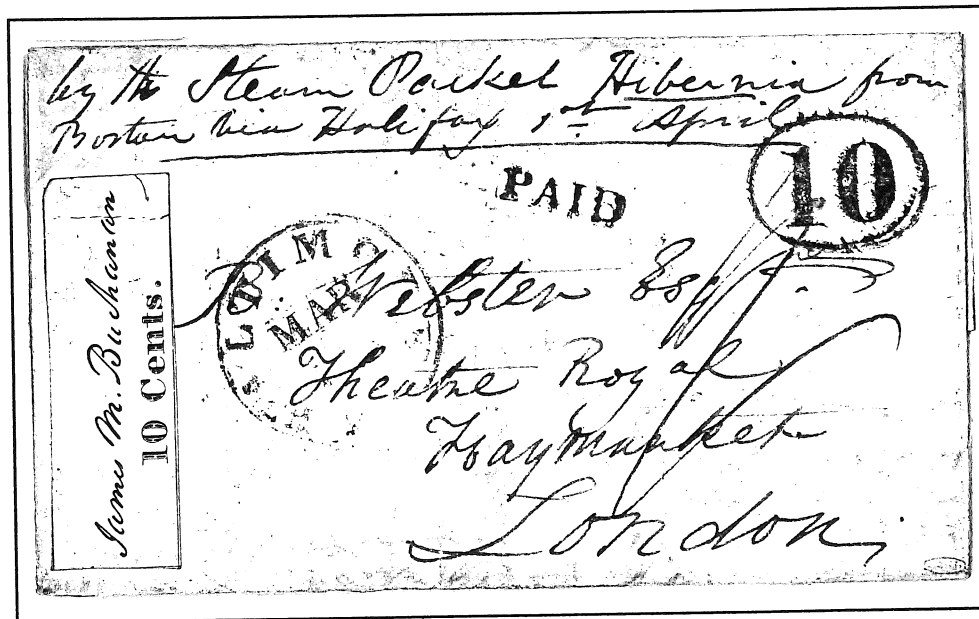 by the Steam Packet Hibernia from
Boston via Halifax 1st April
PAID
10
James M. Buchanan
10 Cents.
LTIMO
MAR
Webster Esqr.
Theatre Royal
Haymarket
London